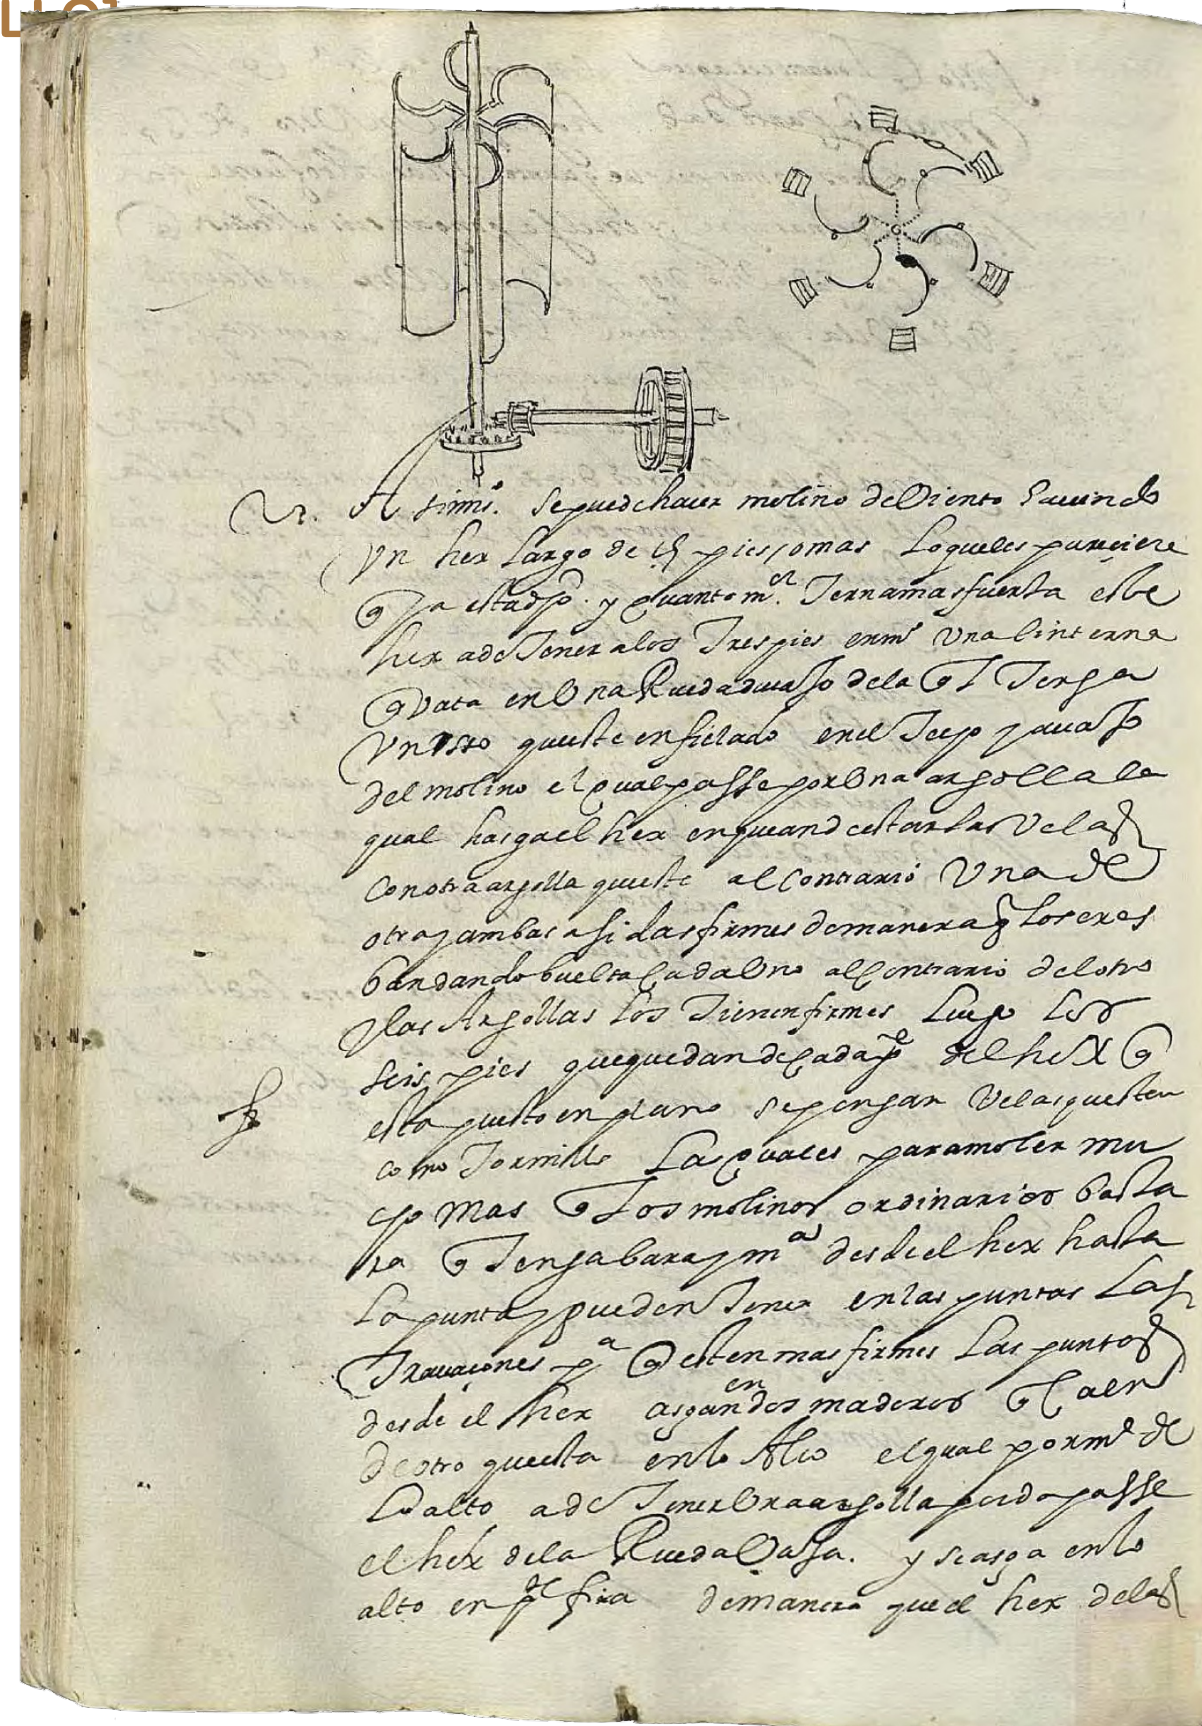 Asimismo. se puede hacer molino de Viento haciendo
Vn hex largo de pies, o mas lo que les pareciere
y quanto mr. Terna mas fuersa este
hex a de Tener a los Tres pies en mº Vna linterna
q Vata en Vna Rueda de la q Tenga
Vn que este en fielado en el
del molino el qual passe por Vna argolla la
qual hasga el hex en que an de estar las Velas
con otra argolla que este al Contrario Vna de
otra, ambas asidas firmes de manera q los exes
ban dando buelta Cada Vno al Contrario del otro
Y las Argollas los Tienen firmes Luego Los
seis pies que quedan de Cada pe del hex q
esta puesto en plano se pongan Velas que sten
como Tornillo La quales para moler mu
cho mas q Los molinos ordinarios basta
ra q Tenga bara y mª desde el hex hasta
La punta y pueden Tener en las puntas Las
Travaçones pª q esten mas firmes Las puntas
desde el hex asgan en dos maderos q Caen
de otro que esta en lo Alto el qual por mº de
Lo alto a de Tener Vna argolla por do passe
el hex de la Rueda Vaxa. y se asga en lo
alto en pte fixa de manera que el hex de las